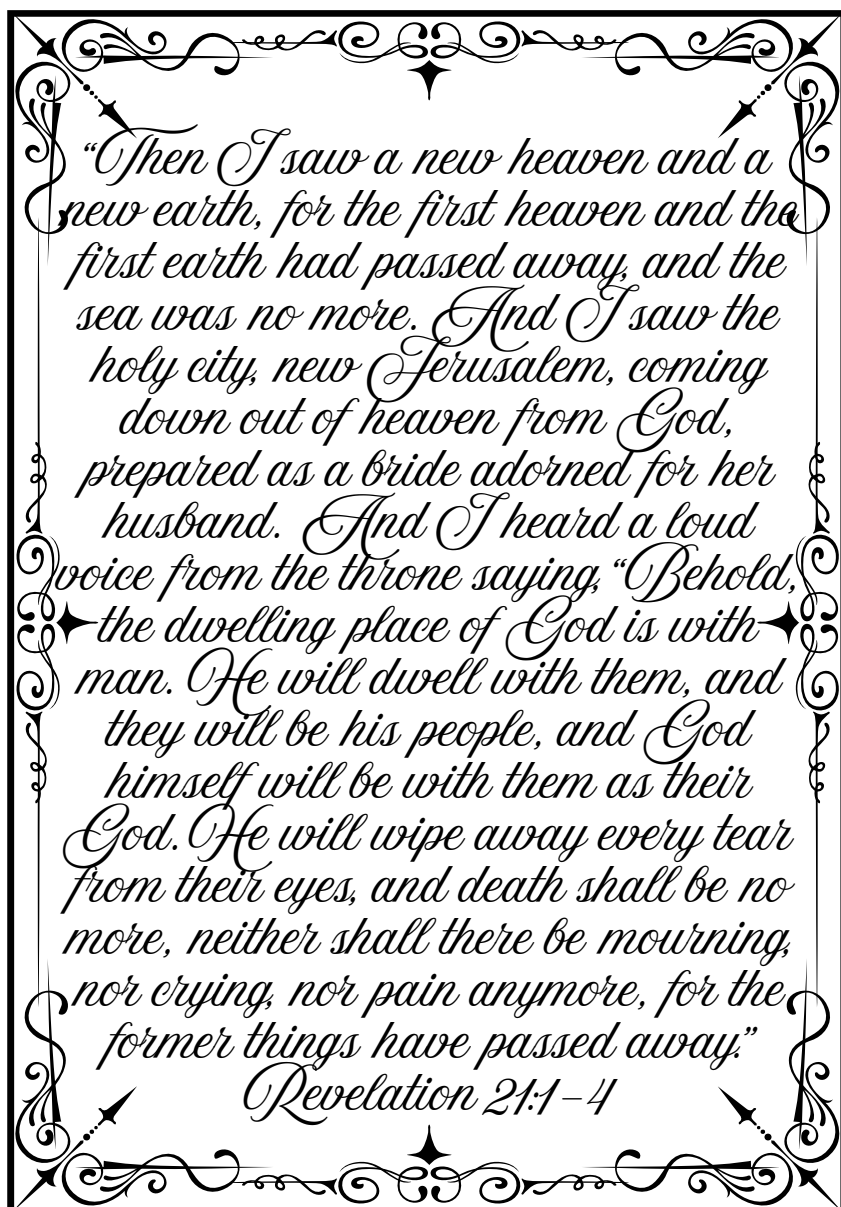 “Then I saw a new heaven and a
new earth, for the first heaven and the
first earth had passed away, and the
sea was no more. And I saw the
holy city, new Jerusalem, coming
down out of heaven from God,
prepared as a bride adorned for her
husband. And I heard a loud
voice from the throne saying, “Behold,
the dwelling place of God is with
man. He will dwell with them, and
they will be his people, and God
himself will be with them as their
God. He will wipe away every tear
from their eyes, and death shall be no
more, neither shall there be mourning,
nor crying, nor pain anymore, for the
former things have passed away.”
Revelation 21:1–4